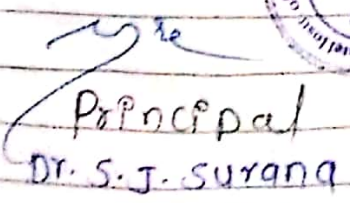 Principal
Dr. S. J. Surana